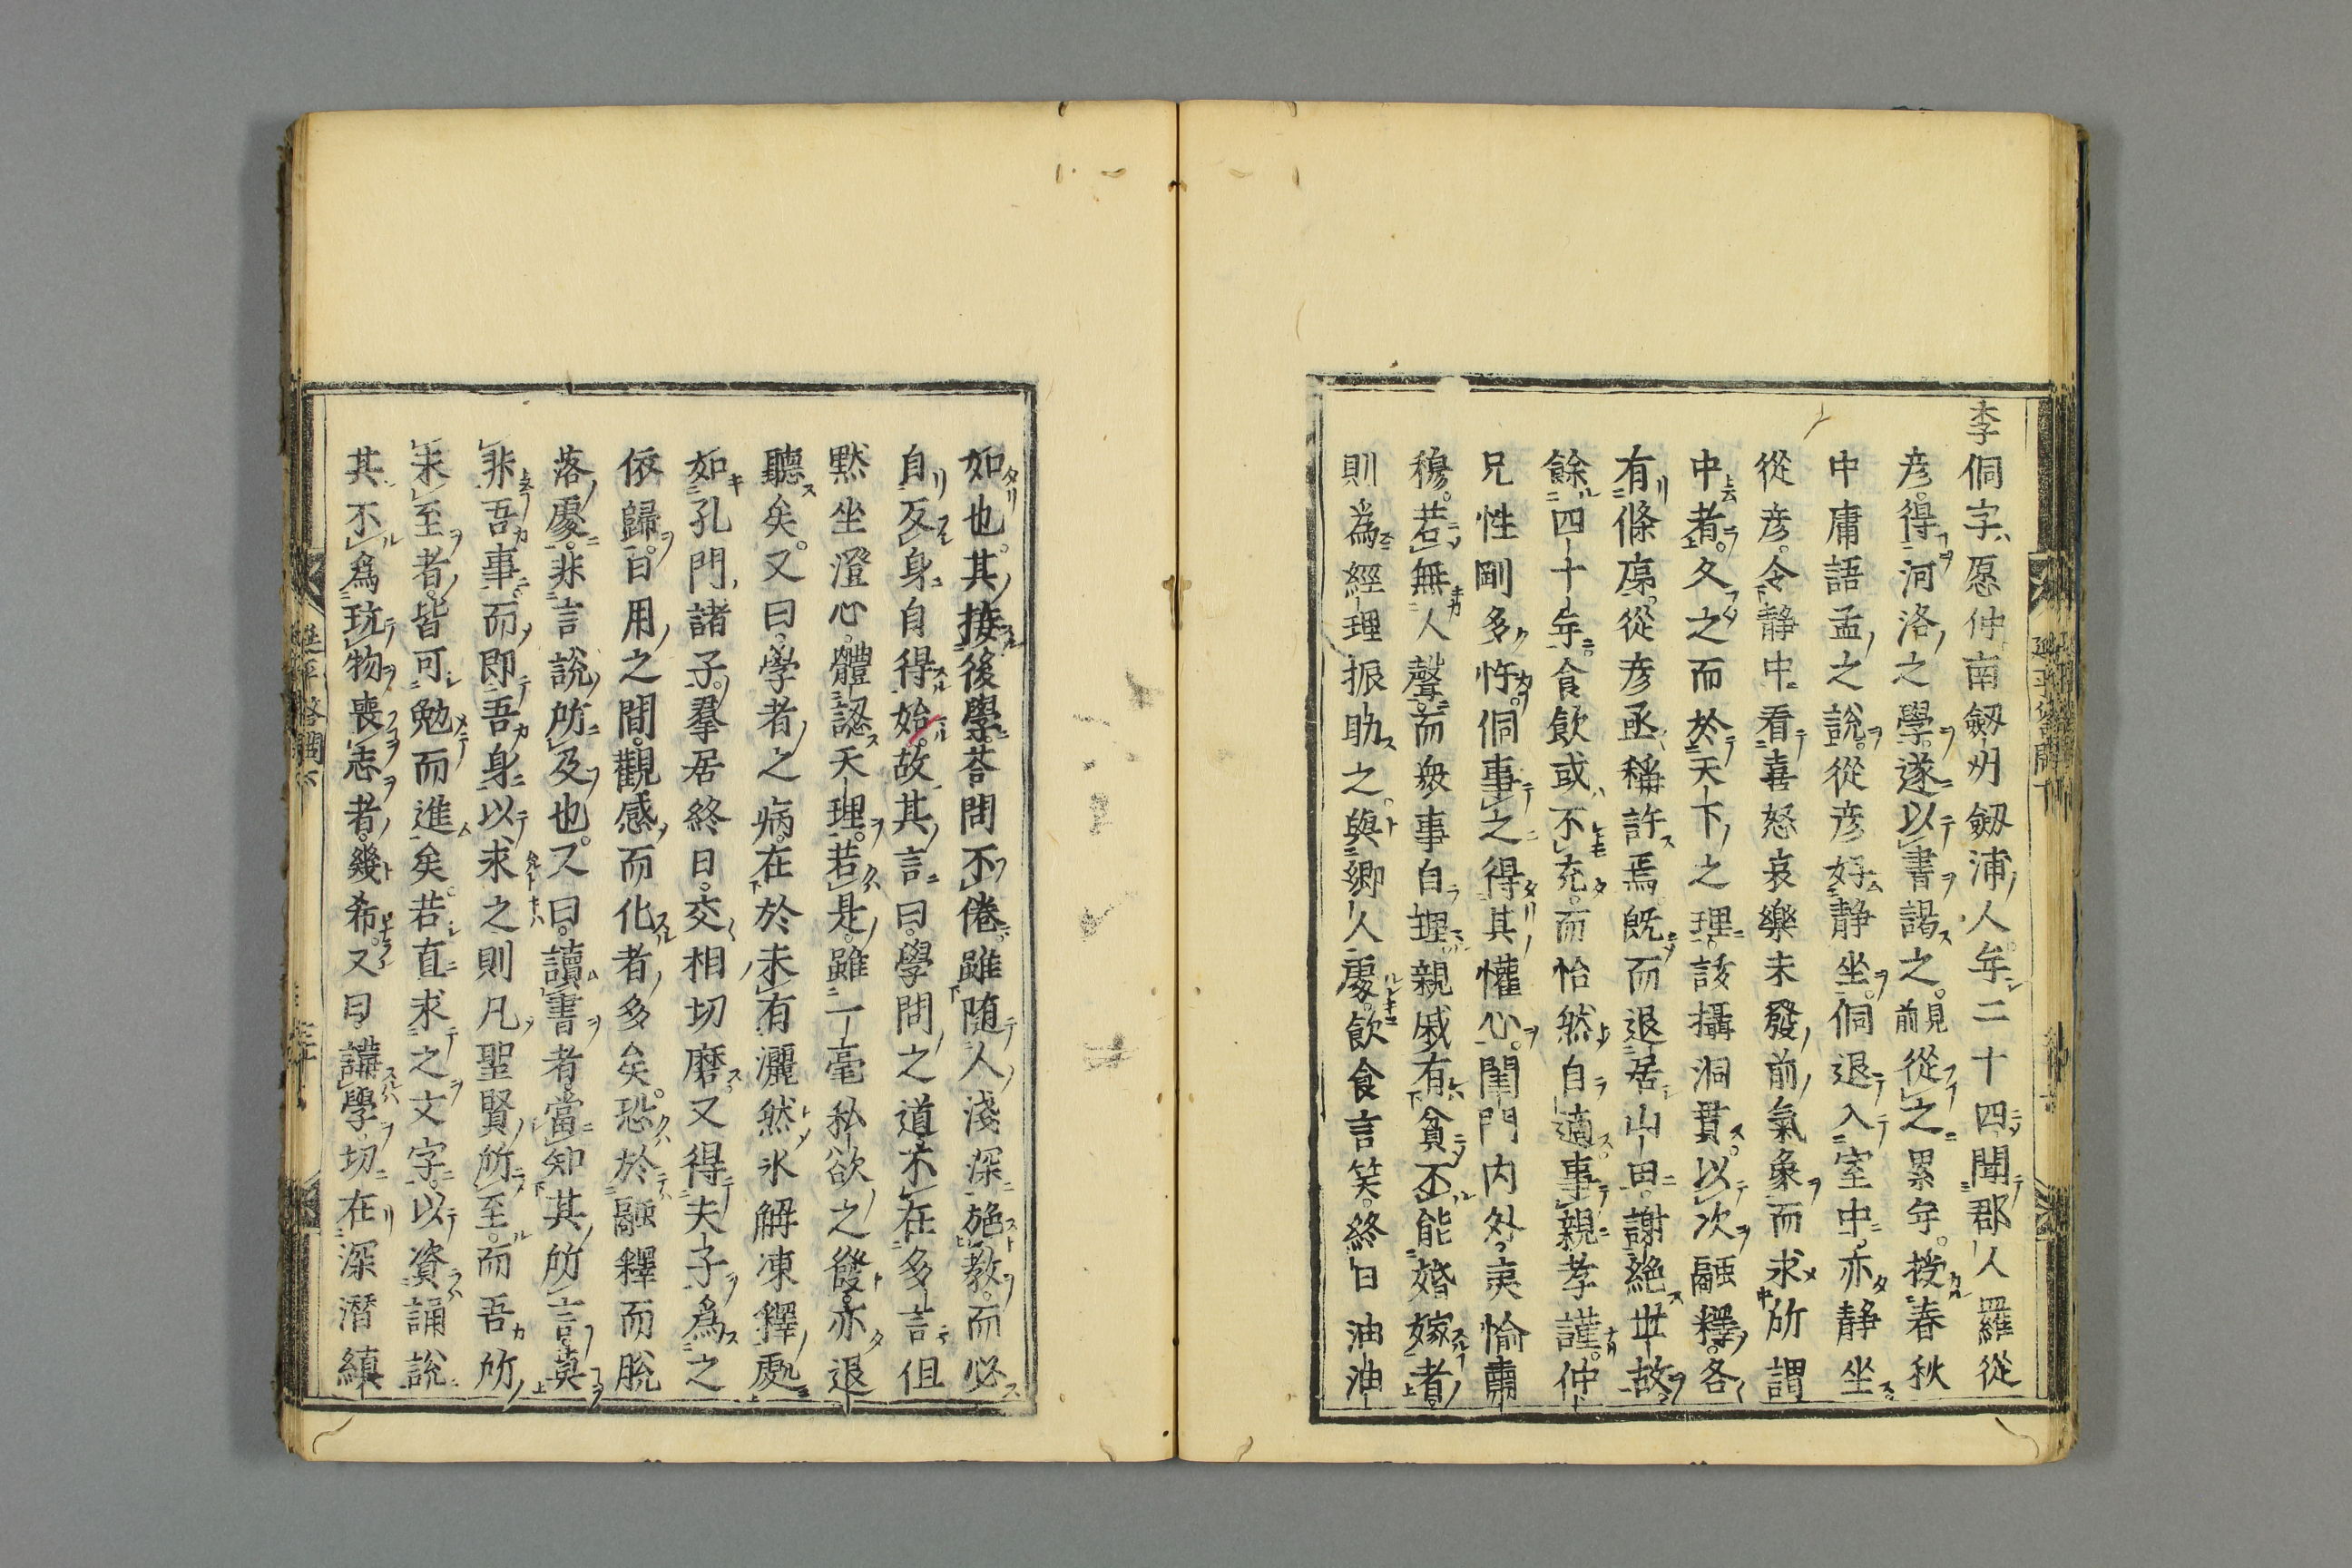 李侗字愿仲南劔州劔浦人年二十四聞郡人羅從
彦得河洛之學遂以書謁之見前從之累年授春秋
中庸語孟之說從彦好静坐侗退入室中亦静坐
從彦令静中看喜怒哀樂未發前氣象而求所謂
中者久之而於天下之理該攝洞貫以次融釋各
有條序從彦亟稱許焉既而退居山田謝絶丗故
餘四十年食飲或不充而怡然自適事親孝謹仲
兄性剛多忤侗事之得其懽心閨門内外夷愉肅
穆若無人聲而衆事自理親戚有貧不能婚嫁者
則為經理振助之與鄉人處飲食言笑終日油油
如也其接後學荅問不倦雖随人淺深施教而必
自反身自得始故其言曰學問之道不在多言但
黙坐澄心體認天理若是雖一毫私欲之發亦退
聽矣又曰學者之病在於未有灑然氷解凍釋處
如孔門諸子羣居終日交相切磨又得夫子爲之
依歸日用之間觀感而化者多矣恐於融釋而脫
落處非言說所及也又曰讀書者當知其所言莫
非吾事而即吾身以求之則凡聖賢所至而吾所
未至者皆可勉而進矣若直求之文字以資誦說
其不爲玩物喪志者幾希又曰講學切在深潛縝
延平答問下
延平答問下